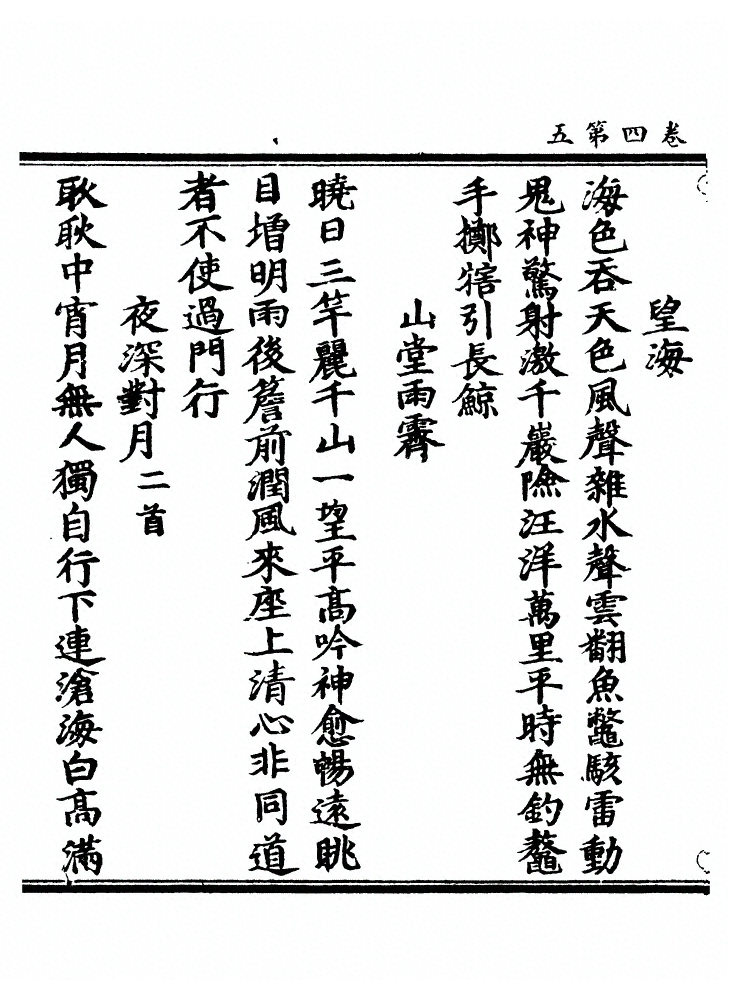 卷四第五
望海
海色吞天色風聲雜水聲雲翻魚鼈駭雷動
鬼神驚射激千巖險汪洋萬里平時無釣鼇
手擲犗引長鯨
山堂雨霽
曉日三竿麗千山一望平高吟神愈暢遠眺
目增明雨後簷前潤風來座上清心非同道
者不使過門行
夜深對月二首
耿耿中宵月無人獨自行下連滄海白高滿